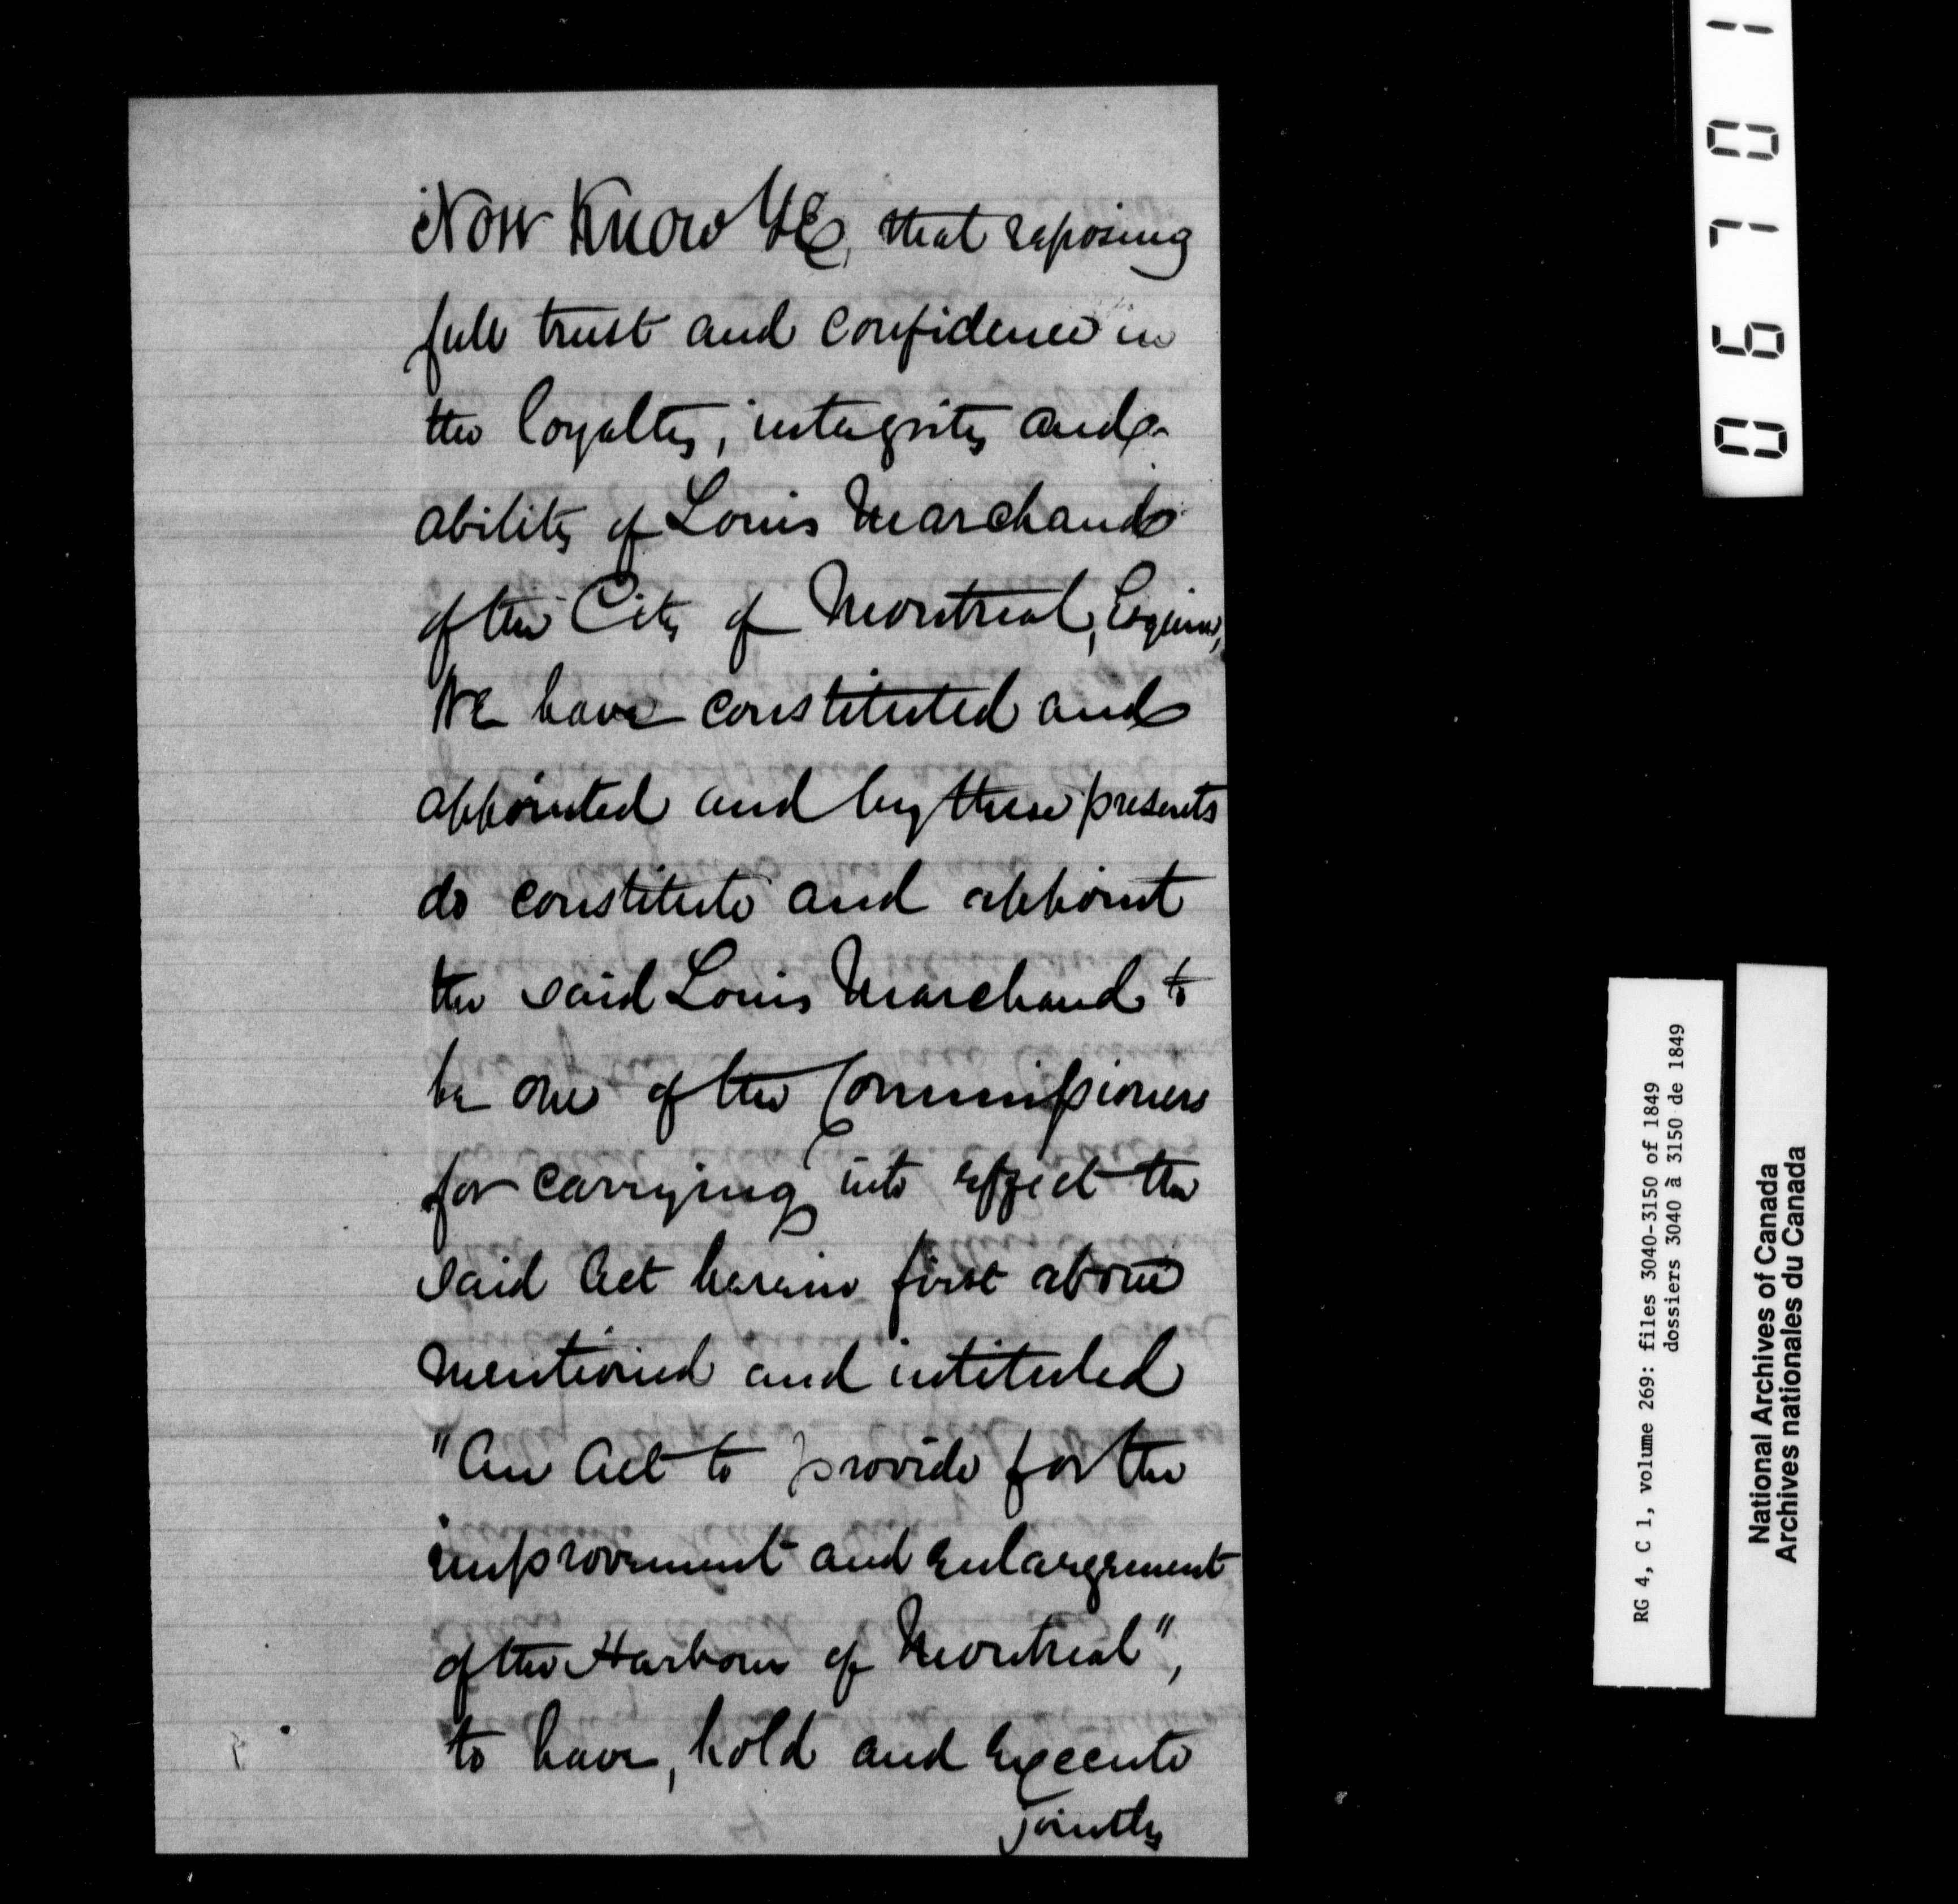 Now Know Ye, that reposing
full trust and confidence in
the loyalty, integrity and
ability of Louis Marchand
of the City of Montreal, Esquire,
We have constituted and
appointed and by these presents
do constitute and appoint
the said Louis Marchand to
be one of the Commissioners
for carrying into effect the
said Act herein first above
mentioned and intituled
"An Act to provide for the
improvement and enlargement
of the Harbour of Montreal",
to have, hold and execute
jointly
06701
RG 4, C 1, volume 269: files 3040-3150 of 1849
dossiers 3040 à 3150 de 1849
National Archives of Canada
Archives nationales du Canada